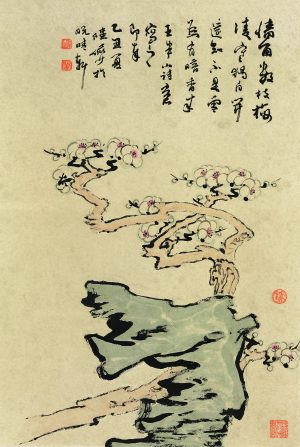 墻角數枝梅
凌寒獨自開
遥知不是雪
為有暗香来
王半山詩意
寫之
乙丑夏
陸儼少於
晚晴軒